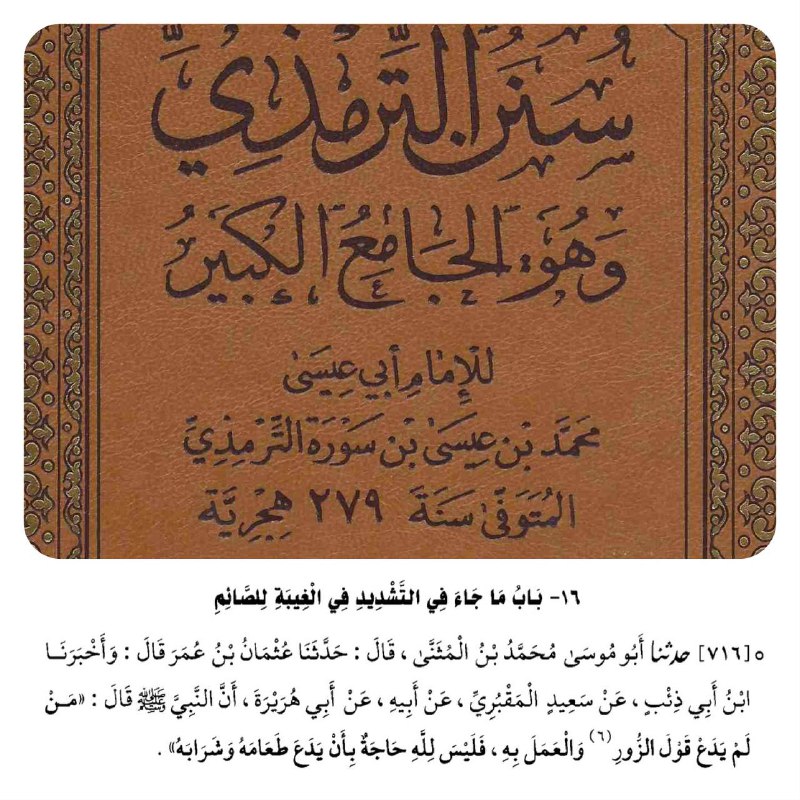 سُنَنُ التِّرْمِذِيِّ
وَهُوَ الجَامِعُ الكَبِيرُ
لِلإِمَامِ أَبِي عِيسَىٰ
مُحَمَّد بْن عِيسَىٰ بْن سَوْرَة التِّرْمِذِيِّ
المُتَوَفَّىٰ سَنَةَ ٢٧٩ هِجْرِيَّة
١٦- بَابُ مَا جَاءَ فِي التَّشْدِيدِ فِي الْغِيبَةِ لِلصَّائِمِ
٥ [٧١٦] حدثنا أَبُو مُوسَىٰ مُحَمَّدُ بْنُ الْمُثَنَّىٰ ، قَالَ : حَدَّثَنَا عُثْمَانُ بْنُ عُمَرَ قَالَ : وَأَخْبَرَنَا
ابْنُ أَبِي ذِئْبٍ ، عَنْ سَعِيدٍ الْمَقْبُرِيِّ ، عَنْ أَبِيهِ ، عَنْ أَبِي هُرَيْرَةَ ، أَنَّ النَّبِيَّ ﷺ قَالَ : «مَنْ
لَمْ يَدَعْ قَوْلَ الزُّورِ (٦) وَالْعَمَلَ بِهِ ، فَلَيْسَ لِلَّهِ حَاجَةٌ بِأَنْ يَدَعَ طَعَامَهُ وَشَرَابَهُ» .